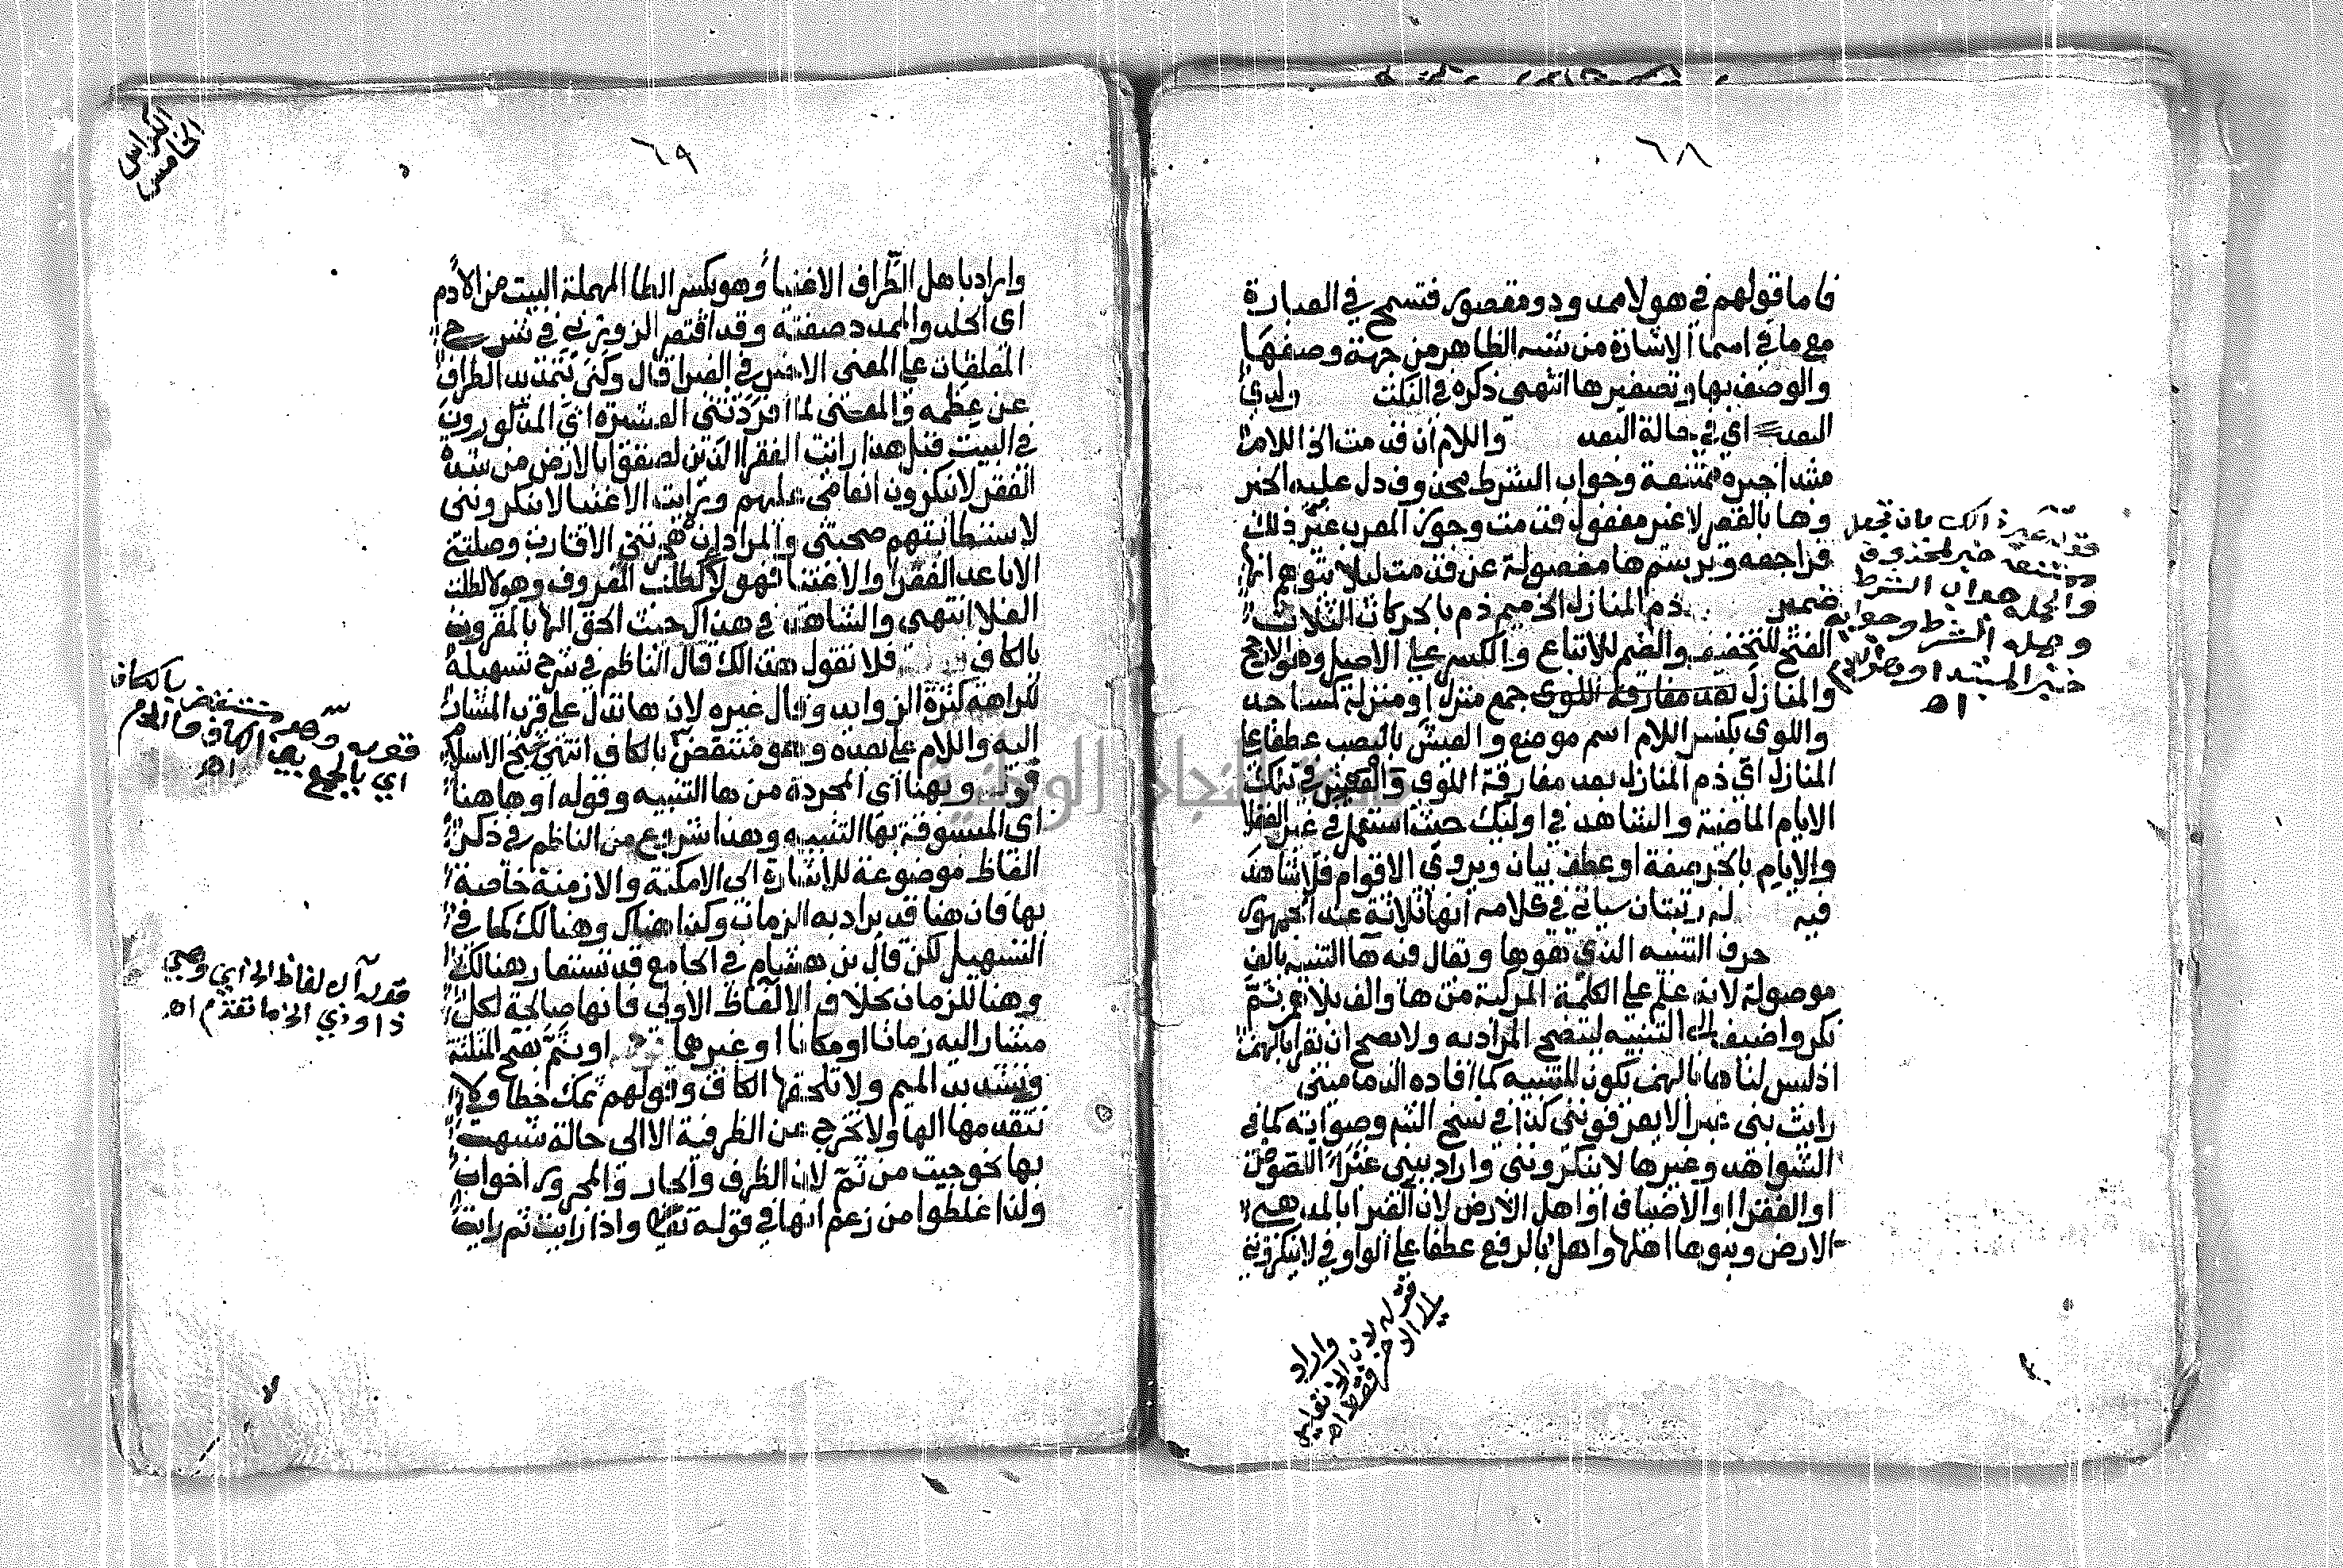 ٦٨
فاما قولهم في هولا ممدود ومقصور فتسمح في العبارة
مع ما في اسما الاشارة من شبه الظاهر من جهة وصفها
والوصف بها وتصغيرها انتهى ذكره في النكت ولدي
البعد اي في حالة البعد واللام ان قدمت الخ اللام
مبتدا خبره ممتنعة وجواب الشرط محذوف دل عليه الخبر
وها بالقصر لا غير مفعول قدمت وجوز المعرب غير ذلك
فراجعه وترسم ها مفصولة عن قدمت ليلا يتوهم انها
ضمير ذم المنازل الخ ميم ذم بالحركات الثلاث
الفتح للتخفيف والضم للاتباع والكسر على الاصل وهو الارجح
والمنازل بعد مفارقة اللوى جمع منزل او منزلة كمساجد
واللوى بكسر اللام اسم موضع والعيش بالنصب عطفا على
المنازل اي ذم المنازل بعد مفارقة اللوى والعيش في تلك
الايام الماضية والشاهد في اوليك حيث استعمل في غير العقلا
والايام بالجر صفة او عطف بيان ويروى الاقوام فلا شاهد
فيه له رتبتان سياتي في كلامه انها ثلاثة عند الجمهور
حرف التنبيه الذي هو ها ويقال فيه ها التنبيه بالف
موصولة لانه علم على الكلمة المركبة من ها والف بلا همز ثم
نكر واضيف الى التنبيه ليتضح المراد به ولا يصح ان يقرا بالهمز
اذ ليس لنا هاء بالهمز تكون للتنبيه كما افاده الدماميني
رايت بني غبرا لا يعرفونني كذا في نسخ الشم وصوابه كما في
الشواهد وغيرها لا ينكرونني واراد ببني غبرا اللصوص
او الفقرا او الاضياف او اهل الارض لان الغبرا بالمد هي
الارض وبنوها اهلها واهل بالرفع عطفا على الواو في لا ينكرونني
واراد
قوله غير ذالك بان تجعل
ممتنعه خبر لمحذوف
والجمله جواب الشرط
وجمله الشرط وجوابه
خبر المبتدا وهو اللام
اه
٦٩
الكراس
الخامس
واراد باهل الطراف الاغنياء وهو بكسر الطا المهملة البيت من الادم
اي الجلد والممدد صفته وقد اقتصر الزوزني في شرح
المعلقات على المعنى الاخير في الغبرا قال وكنى بتمديد الطراف
عن عظمه والمعنى لما افردتني العشيرة اي المذكورون
في البيت قبل هذا رايت الفقرا الذين لصقوا بالارض من شدة
الفقر لا ينكرون انعامي عليهم ورايت الاغنيا لا ينكرونني
لاستطابتهم صحبتي والمراد ان هجرتني الاقارب وصلتني
الاباعد الفقرا والاغنيا فهولا لطلب المعروف وهولا لطلب
العلا انتهى والشاهد في هذاك حيث الحق الها بالمقرون
بالكاف فلا تقول هذالك قال الناظم في شرح تسهيله
لكراهة كثرة الزوايد وقال غيره لان ها تدل على قرب المشار
اليه واللام على بعده وهو منتقض بالكاف انتهى شيخ الاسلام
قوله وبهنا اي المجردة من ها التنبيه وقوله او ها هنا
اي المسبوقة بها التنبيه وهذا شروع من الناظم في ذكر
الفاظ موضوعة للاشارة الى الامكنة والازمنة خاصة
بها فان هنا قد يراد به الزمان وكذا هناك وهنالك كما في
التسهيل لكن قال ابن هشام في الجامع قد تستعار هنالك
وهنا للزمان بخلاف الالفاظ الاولى فانها صالحة لكل
مشار اليه زمانا او مكانا او غيرهما قوله او بثم بفتح المثلثة
وتشديد الميم ولا تلحقها الكاف وقولهم ثمك خطا ولا
تتقدمها الها ولا تخرج عن الظرفية الا الى حالة شبيهة
بها نحو جيت من ثم لان الظرف والجار والمجرور اخوان
ولذا غلطوا من زعم انها في قوله تعالى واذا رايت ثم رايت
قوله وهو منتقض بالكاف
اي بالجمع بين الكاف
اه
قوله الالفاظ الخ اي وهي
ذا وذي الخ ما تقدم اه